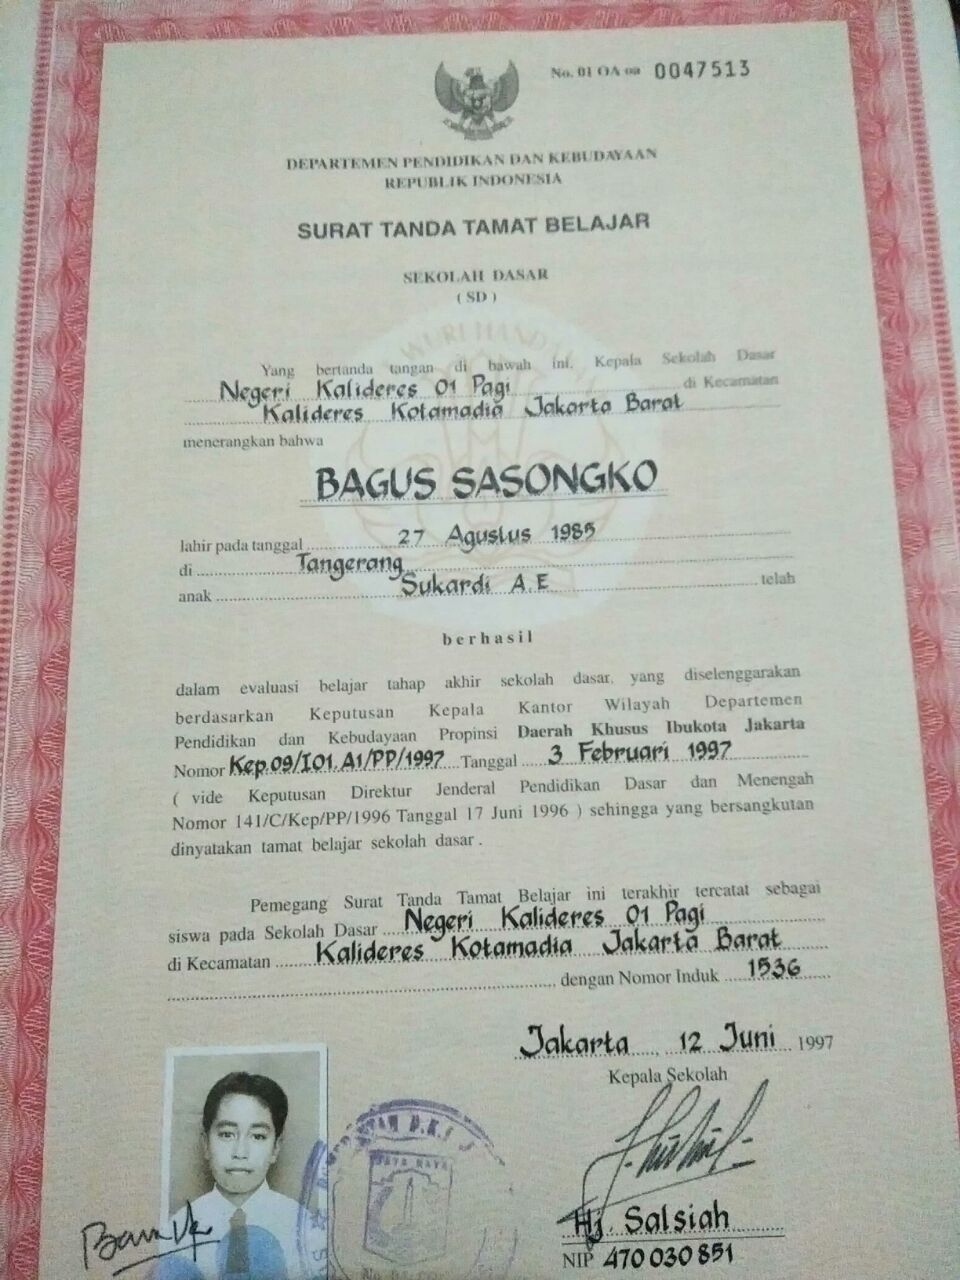 No. 01 OA oa 0047513
DEPARTEMEN PENDIDIKAN DAN KEBUDAYAAN
REPUBLIK INDONESIA
SURAT TANDA TAMAT BELAJAR
SEKOLAH DASAR
( SD )
Yang bertanda tangan di bawah ini, Kepala Sekolah Dasar
Negeri Kalideres 01 Pagi di Kecamatan
Kalideres Kotamadia Jakarta Barat
menerangkan bahwa
BAGUS SASONGKO
lahir pada tanggal 27 Agustus 1985
di Tangerang
anak Sukardi A.E telah
berhasil
dalam evaluasi belajar tahap akhir sekolah dasar, yang diselenggarakan
berdasarkan Keputusan Kepala Kantor Wilayah Departemen
Pendidikan dan Kebudayaan Propinsi Daerah Khusus Ibukota Jakarta
Nomor Kep.09/I01.A1/PP/1997 Tanggal 3 Februari 1997
( vide Keputusan Direktur Jenderal Pendidikan Dasar dan Menengah
Nomor 141/C/Kep/PP/1996 Tanggal 17 Juni 1996 ) sehingga yang bersangkutan
dinyatakan tamat belajar sekolah dasar .
Pemegang Surat Tanda Tamat Belajar ini terakhir tercatat sebagai
siswa pada Sekolah Dasar Negeri Kalideres 01 Pagi
di Kecamatan Kalideres Kotamadia Jakarta Barat
dengan Nomor Induk 1536
Jakarta, 12 Juni 1997
Kepala Sekolah
JAYA RAYA
Hj. Salsiah
NIP 470 030 851